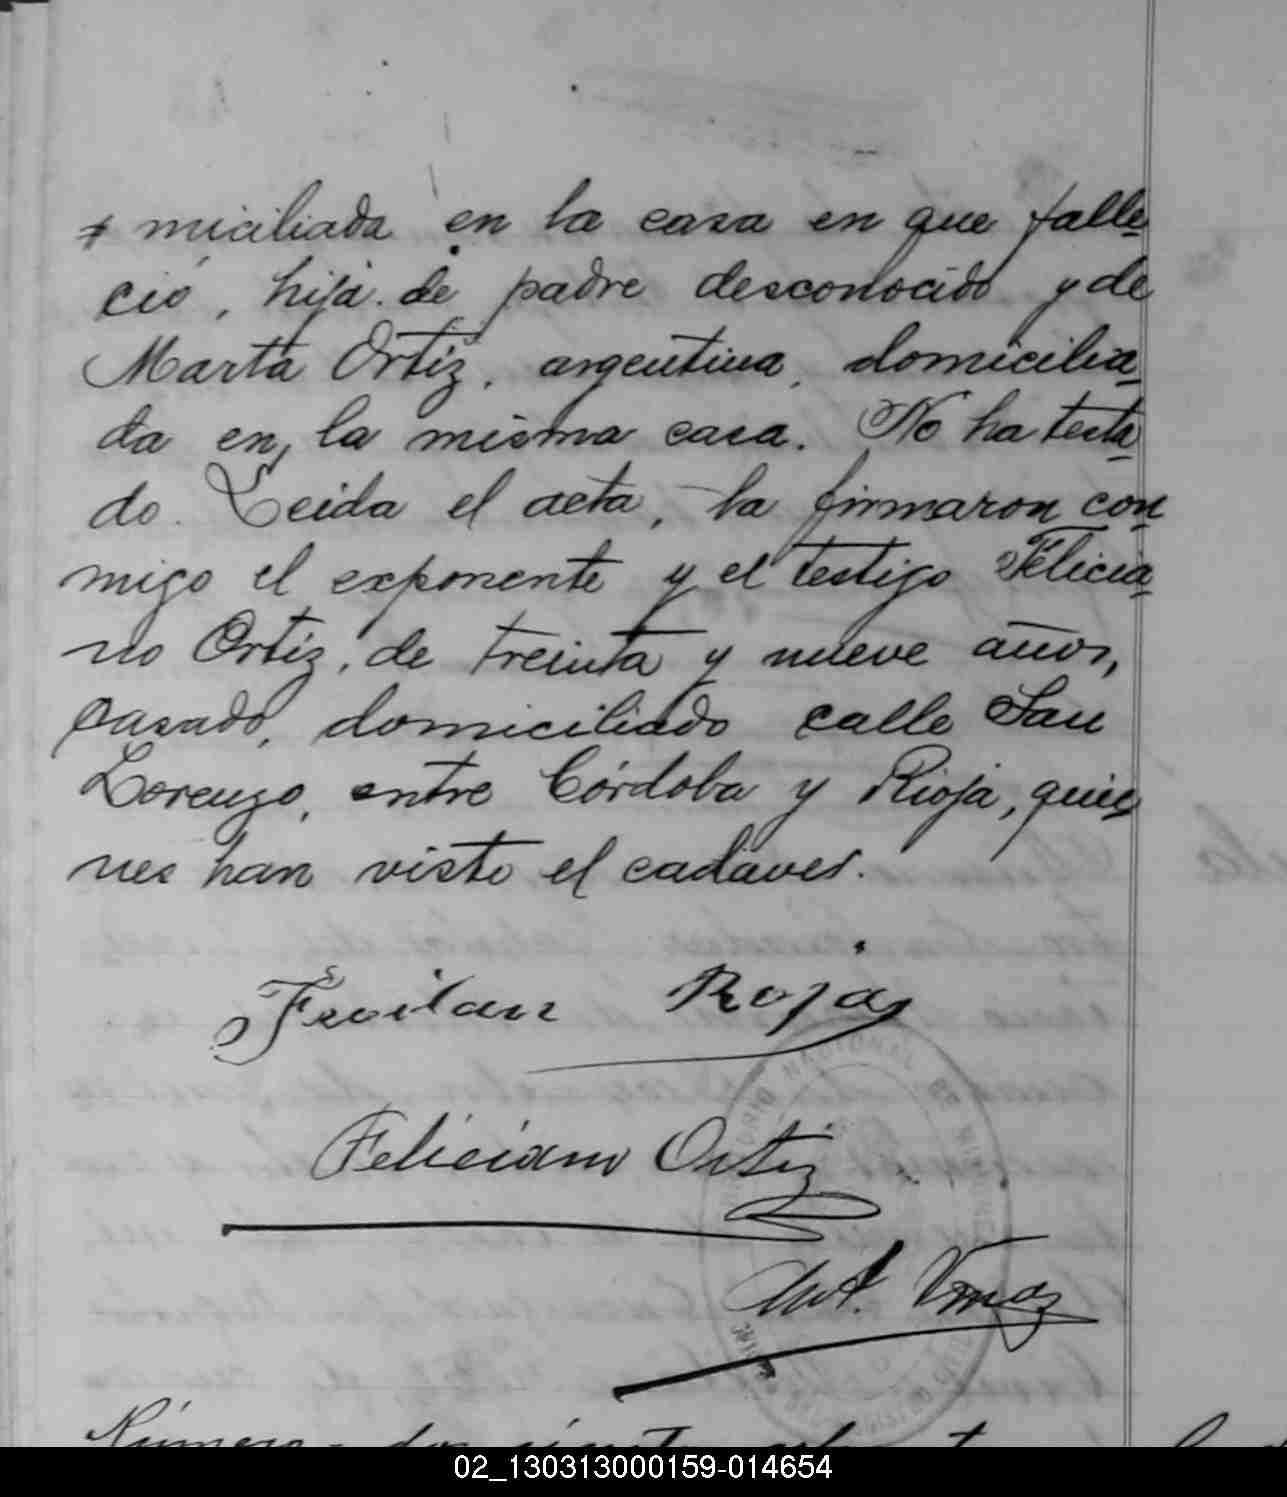 miciliada en la casa en que falle
ció, hija de padre desconocido y de
Marta Ortiz, argentina, domicilia
da en la misma casa. No ha testa
do. Leida el acta, la firmaron con
migo el exponente y el testigo Felicia
no Ortiz, de treinta y nueve años,
casado, domiciliado calle San
Lorenzo, entre Córdoba y Rioja, quie
nes han visto el cadáver.
Froilan Rojas
Feliciano Ortiz
Número
02_130313000159-014654